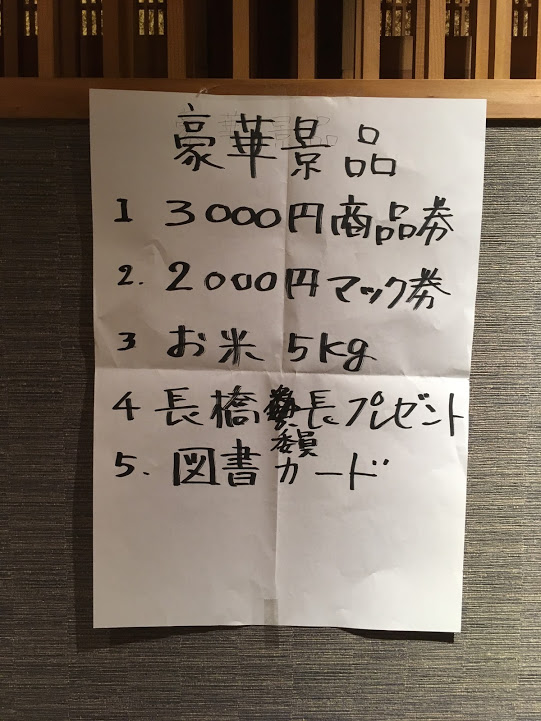 豪華景品
1 3000円商品券
2. 2000円マック券
3 お米 5kg
4 長橋委員長プレゼント
5. 図書カード